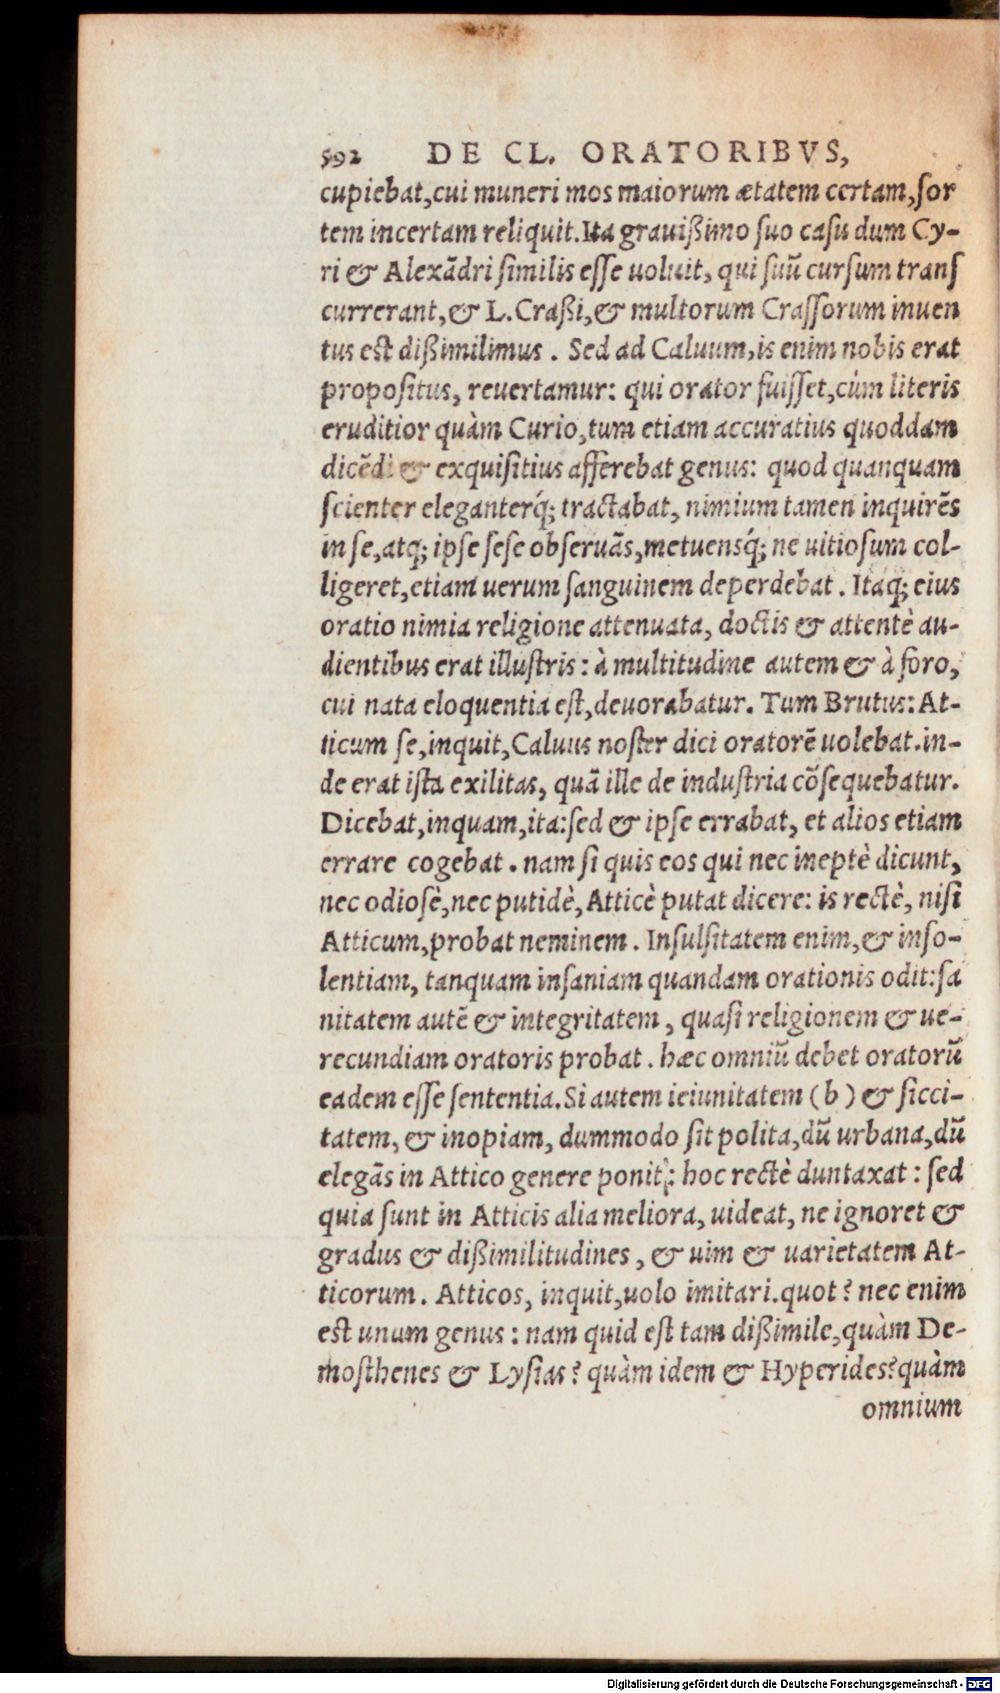 592 DE CL. ORATORIBVS,
cupiebat,cui muneri mos maiorum ætatem certam,ſor
tem incertam reliquit.Ita grauißimo ſuo caſu dum Cy-
ri & Alexãdri ſimilis eſſe uoluit, qui ſuũ curſum tranſ
currerant,& L.Craßi,& multorum Craſſorum inuen
tus eſt dißimilimus . Sed ad Caluum,is enim nobis erat
propoſitus, reuertamur: qui orator fuiſſet,cùm literis
eruditior quàm Curio,tum etiam accuratius quoddam
dicẽdi & exquiſitius afferebat genus: quod quanquam
ſcienter eleganterq́; tractabat, nimium tamen inquirẽs
in ſe,atq; ipſe ſeſe obſeruãs,metuensq́; ne uitioſum col-
ligeret,etiam uerum ſanguinem deperdebat . Itaq; eius
oratio nimia religione attenuata, doctis & attentè au-
dientibus erat illuſtris : à multitudine autem & à foro,
cui nata eloquentia eſt,deuorabatur. Tum Brutus: At-
ticum ſe,inquit,Caluus noſter dici oratorẽ uolebat.in-
de erat iſta exilitas, quã ille de induſtria cõſequebatur.
Dicebat,inquam,ita:ſed & ipſe errabat, et alios etiam
errare cogebat . nam ſi quis eos qui nec ineptè dicunt,
nec odioſè,nec putidè, Atticè putat dicere: is rectè, niſi
Atticum,probat neminem . Inſulſitatem enim,& inſo-
lentiam, tanquam inſaniam quandam orationis odit:ſa
nitatem autẽ & integritatem , quaſi religionem & ue-
recundiam oratoris probat . hæc omniũ debet oratorũ
eadem eſſe ſententia.Si autem ieiunitatem (b) & ſicci-
tatem, & inopiam, dummodo ſit polita,dũ urbana,dũ
elegãs in Attico genere ponit: hoc rectè duntaxat : ſed
quia ſunt in Atticis alia meliora, uideat, ne ignoret &
gradus & dißimilitudines , & uim & uarietatem At-
ticorum . Atticos, inquit,uolo imitari.quot ? nec enim
eſt unum genus : nam quid eſt tam dißimile,quàm De-
moſthenes & Lyſias ? quàm idem & Hyperides?quàm
omnium
Digitalisierung gefördert durch die Deutsche Forschungsgemeinschaft - DFG